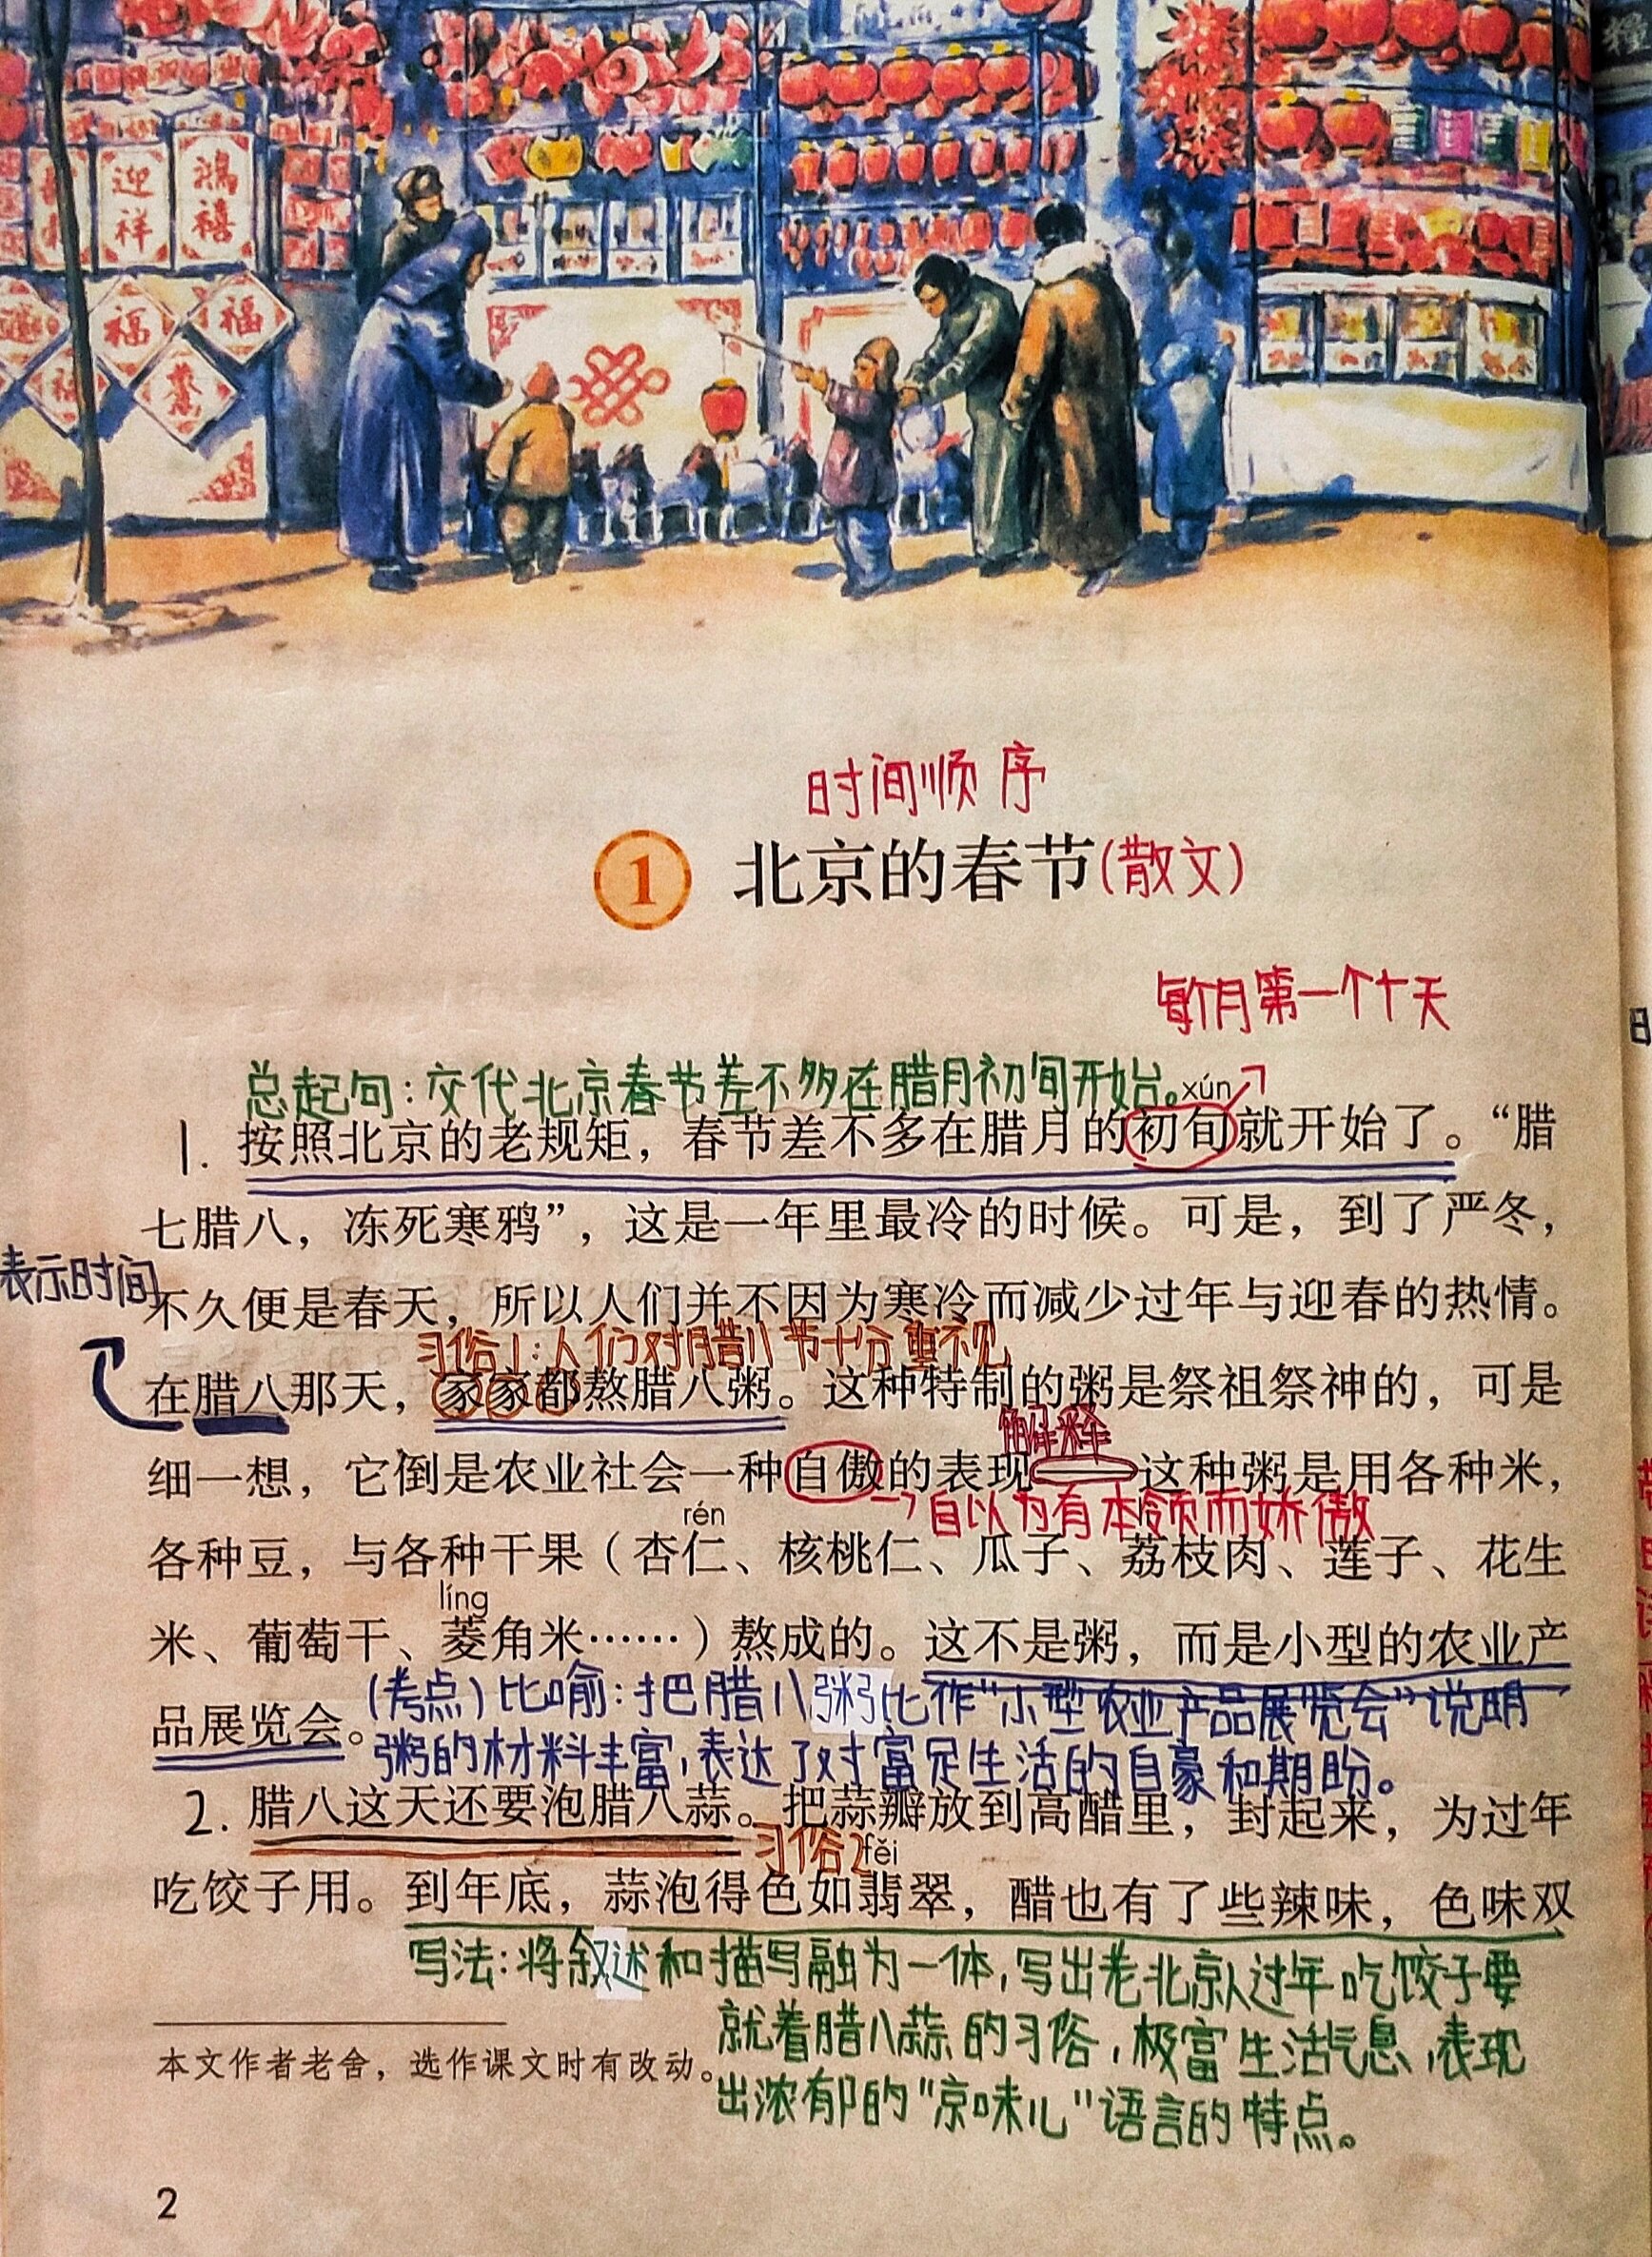 迎祥
鴻禧
福
福
福
时间顺序
1 北京的春节(散文)
每个月第一个十天
总起句:交代北京春节差不多在腊月初旬开始。
xún
1. 按照北京的老规矩，春节差不多在腊月的初旬就开始了。“腊
七腊八，冻死寒鸦”，这是一年里最冷的时候。可是，到了严冬，
表示时间
不久便是春天，所以人们并不因为寒冷而减少过年与迎春的热情。
习俗1:人们对腊八节十分重视
在腊八那天，家家都熬腊八粥。这种特制的粥是祭祖祭神的，可是
解释
细一想，它倒是农业社会一种自傲的表现——这种粥是用各种米，
→自以为有本领而娇傲
rén
各种豆，与各种干果（杏仁、核桃仁、瓜子、荔枝肉、莲子、花生
líng
米、葡萄干、菱角米……）熬成的。这不是粥，而是小型的农业产
(考点)比喻:把腊八粥比作“小型农业产品展览会”说明
品展览会。
粥的材料丰富,表达了对富足生活的自豪和期盼。
2. 腊八这天还要泡腊八蒜。把蒜瓣放到高醋里，封起来，为过年
习俗2
fěi
吃饺子用。到年底，蒜泡得色如翡翠，醋也有了些辣味，色味双
写法:将叙述和描写融为一体,写出老北京人过年吃饺子要
就着腊八蒜的习俗,极富生活气息,表现
本文作者老舍，选作课文时有改动。
出浓郁的“京味儿”语言的特点。
2